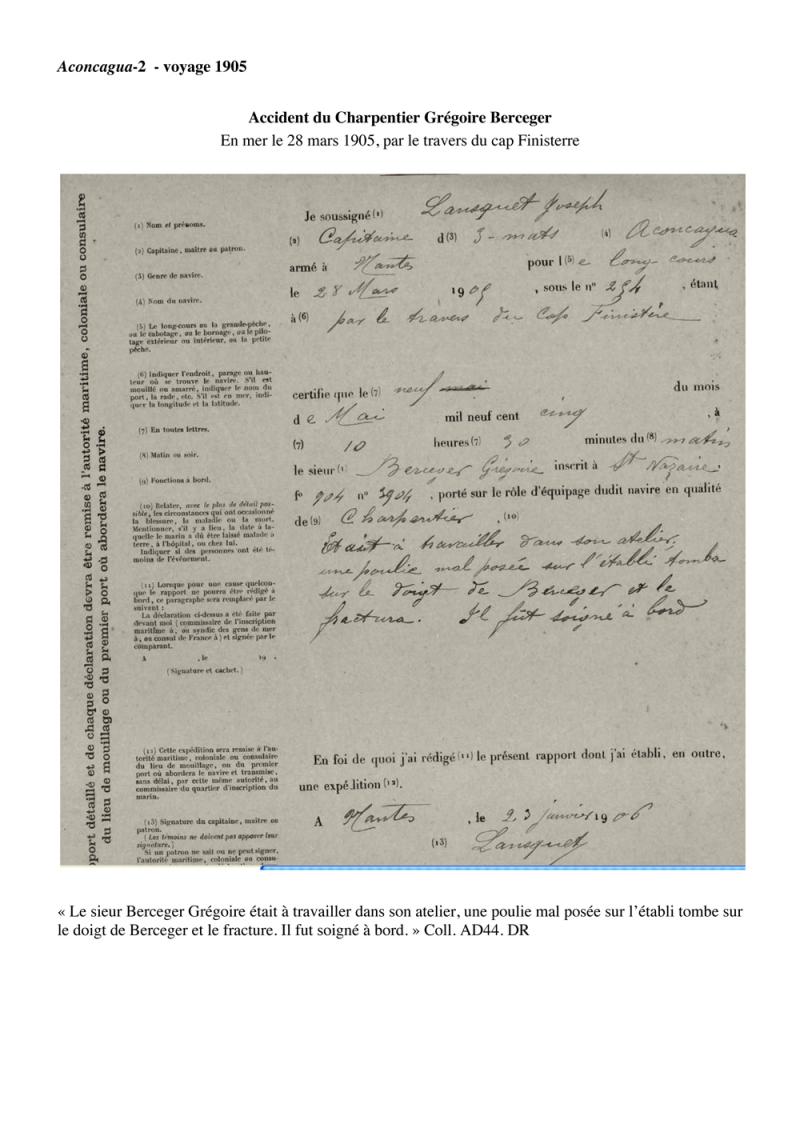 Aconcagua-2 - voyage 1905
Accident du Charpentier Grégoire Berceger
En mer le 28 mars 1905, par le travers du cap Finisterre
pport détaillé et de chaque déclaration devra être remise à l'autorité maritime, coloniale ou consulaire
du lieu de mouillage ou du premier port où abordera le navire.
(1) Nom et prénoms.
(2) Capitaine, maître ou patron.
(3) Genre de navire.
(4) Nom du navire.
(5) Le long-cours ou la grande-pêche,
ou le cabotage, ou le bornage, ou le pilo-
tage extérieur ou intérieur, ou la petite
pêche.
(6) Indiquer l'endroit, parage ou hau-
teur où se trouve le navire. S'il est
mouillé ou amarré, indiquer le nom du
port, la rade, etc. S'il est en mer, indi-
quer la longitude et la latitude.
(7) En toutes lettres.
(8) Matin ou soir.
(9) Fonctions à bord.
(10) Relater, avec le plus de détail pos-
sible, les circonstances qui ont occasionné
la blessure, la maladie ou la mort.
Mentionner, s'il y a lieu, la date à la-
quelle le marin a dû être laissé malade à
terre, à l'hôpital, ou chez lui.
Indiquer si des personnes ont été té-
moins de l'événement.
(11) Lorsque pour une cause quelcon-
que le rapport ne pourra être rédigé à
bord, ce paragraphe sera remplacé par le
suivant :
La déclaration ci-dessus a été faite par
devant moi (commissaire de l'inscription
maritime à, ou syndic des gens de mer
à, ou consul de France à) et signée par le
comparant.
A , le 19 .
(Signature et cachet.)
(12) Cette expédition sera remise à l'au-
torité maritime, coloniale ou consulaire
du lieu de mouillage, ou du premier
port où abordera le navire et transmise,
sans délai, par cette même autorité, au
commissaire du quartier d'inscription du
marin.
(13) Signature du capitaine, maître ou
patron.
(Les témoins ne doivent pas apposer leur
signature.)
Si un patron ne sait ou ne peut signer,
l'autorité maritime, coloniale ou consu-
Je soussigné (1) Lansquet Joseph
(2) Capitaine d(3) 3-mats (4) Aconcagua
armé à Nantes pour l(5)e long cours
le 28 Mars 1905 , sous le n° 234 , étant
à (6) par le travers du Cap Finistère
certifie que le (7) neuf du mois
de Mai mil neuf cent cinq , à
(7) 10 heures (7) 30 minutes du (8) matin
le sieur (1) Berceger Grégoire inscrit à St Nazaire.
f° 904 n° 3904 , porté sur le rôle d'équipage dudit navire en qualité
de (9) Charpentier . (10)
Etait à travailler dans son atelier,
une poulie mal posée sur l'établi tomba
sur le doigt de Berceger et le
fractura. Il fût soigné à bord
En foi de quoi j'ai rédigé (11) le présent rapport dont j'ai établi, en outre,
une expédition (12).
A Nantes , le 23 janvier 1906
(13) Lansquet
« Le sieur Berceger Grégoire était à travailler dans son atelier, une poulie mal posée sur l'établi tombe sur
le doigt de Berceger et le fracture. Il fut soigné à bord. » Coll. AD44. DR